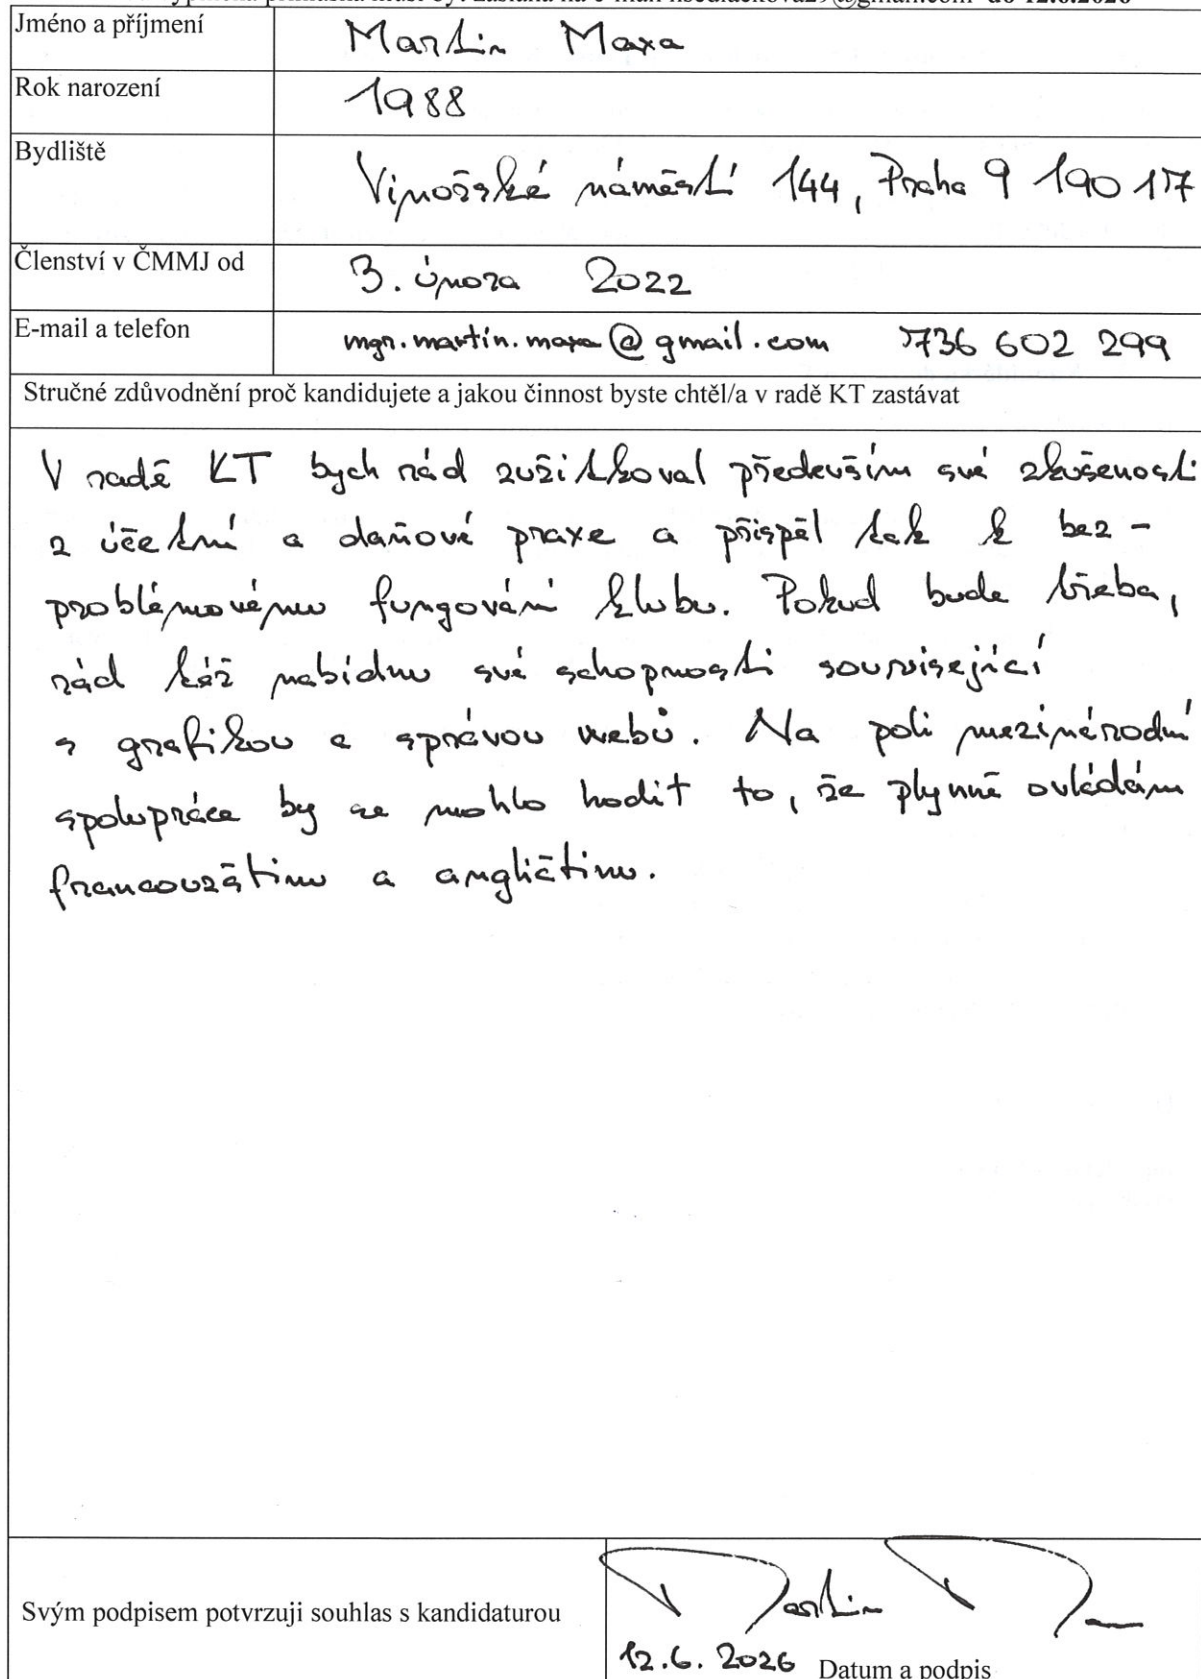 Jméno a příjmení Martin Maxa
Rok narození 1988
Bydliště Vinořské náměstí 144, Praha 9 190 17
Členství v ČMMJ od 3. února 2022
E-mail a telefon mgr.martin.maxa@gmail.com 736 602 299
Stručné zdůvodnění proč kandidujete a jakou činnost byste chtěl/a v radě KT zastávat
V radě KT bych rád zužitkoval především své zkušenosti
z účetní a daňové praxe a přispěl tak k bez-
problémovému fungování klubu. Pokud bude třeba,
rád též nabídnu své schopnosti související
s grafikou a správou webů. Na poli mezinárodní
spolupráce by se mohlo hodit to, že plynně ovládám
francouzštinu a angličtinu.
Svým podpisem potvrzuji souhlas s kandidaturou
Martin
12.6. 2026 Datum a podpis